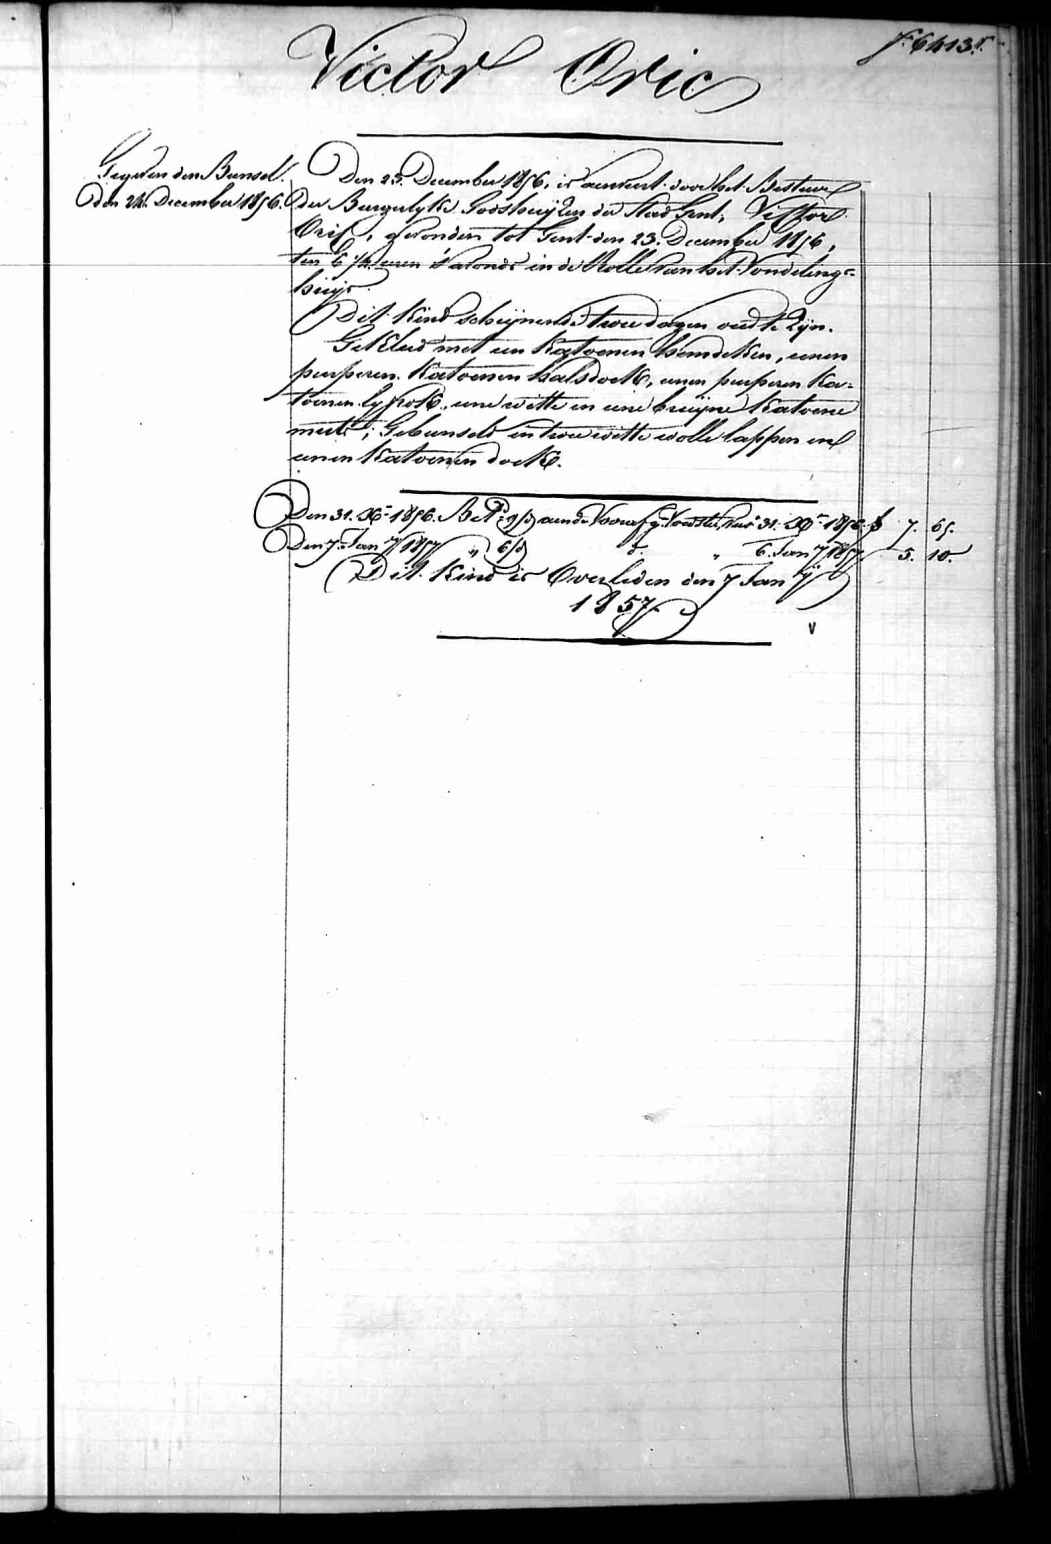 Victor Oric
fº 6413 5.
Gegeven den Bunsel.
den 24. December 1856.
Den 23. December 1856, is aenveert door het Bestuur
der Burgerlyke Godshuyzen der Stad Gent, Victor
Oric, gevonden tot Gent den 23. December 1856,
ten 6 1/4 uren 's avonds in de Rolle van het Vondelings=
huys.
Dit kind scheynende twee dagen oud te zyn.
Gekleed met een katoenen hemdeken, eenen
purperen katoenen halsdoek, eenen purperen ka=
toenen lyfrok, eene witte en eene bruyne katoene
muts; Gebunseld in twee witte wolle lappen en
eenen katoenen doek.
Den 31. Xbr 1856. Betd 9/d aen de Voorsz. Voedster, tot 31. Xbr 1856. f 7. 65.
Den 7. Jany 1857 " 6/d dº " 6. Jany 1857 5. 10.
Dit Kind is Overleden den 7 Jany
1857.
v